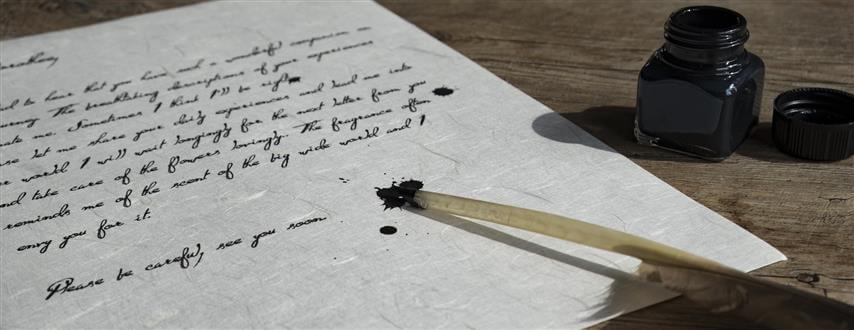 to hear that you have a wonderful companion on
The breathtaking descriptions of your experiences
me. Sometimes I think I'll be right
let me share your daily experiences and lead me into
world I will wait longingly for the next letter from you
and take care of the flowers lovingly. The fragrance often
reminds me of the scent of the big wide world and I
envy you for it.
Pease be careful, see you soon